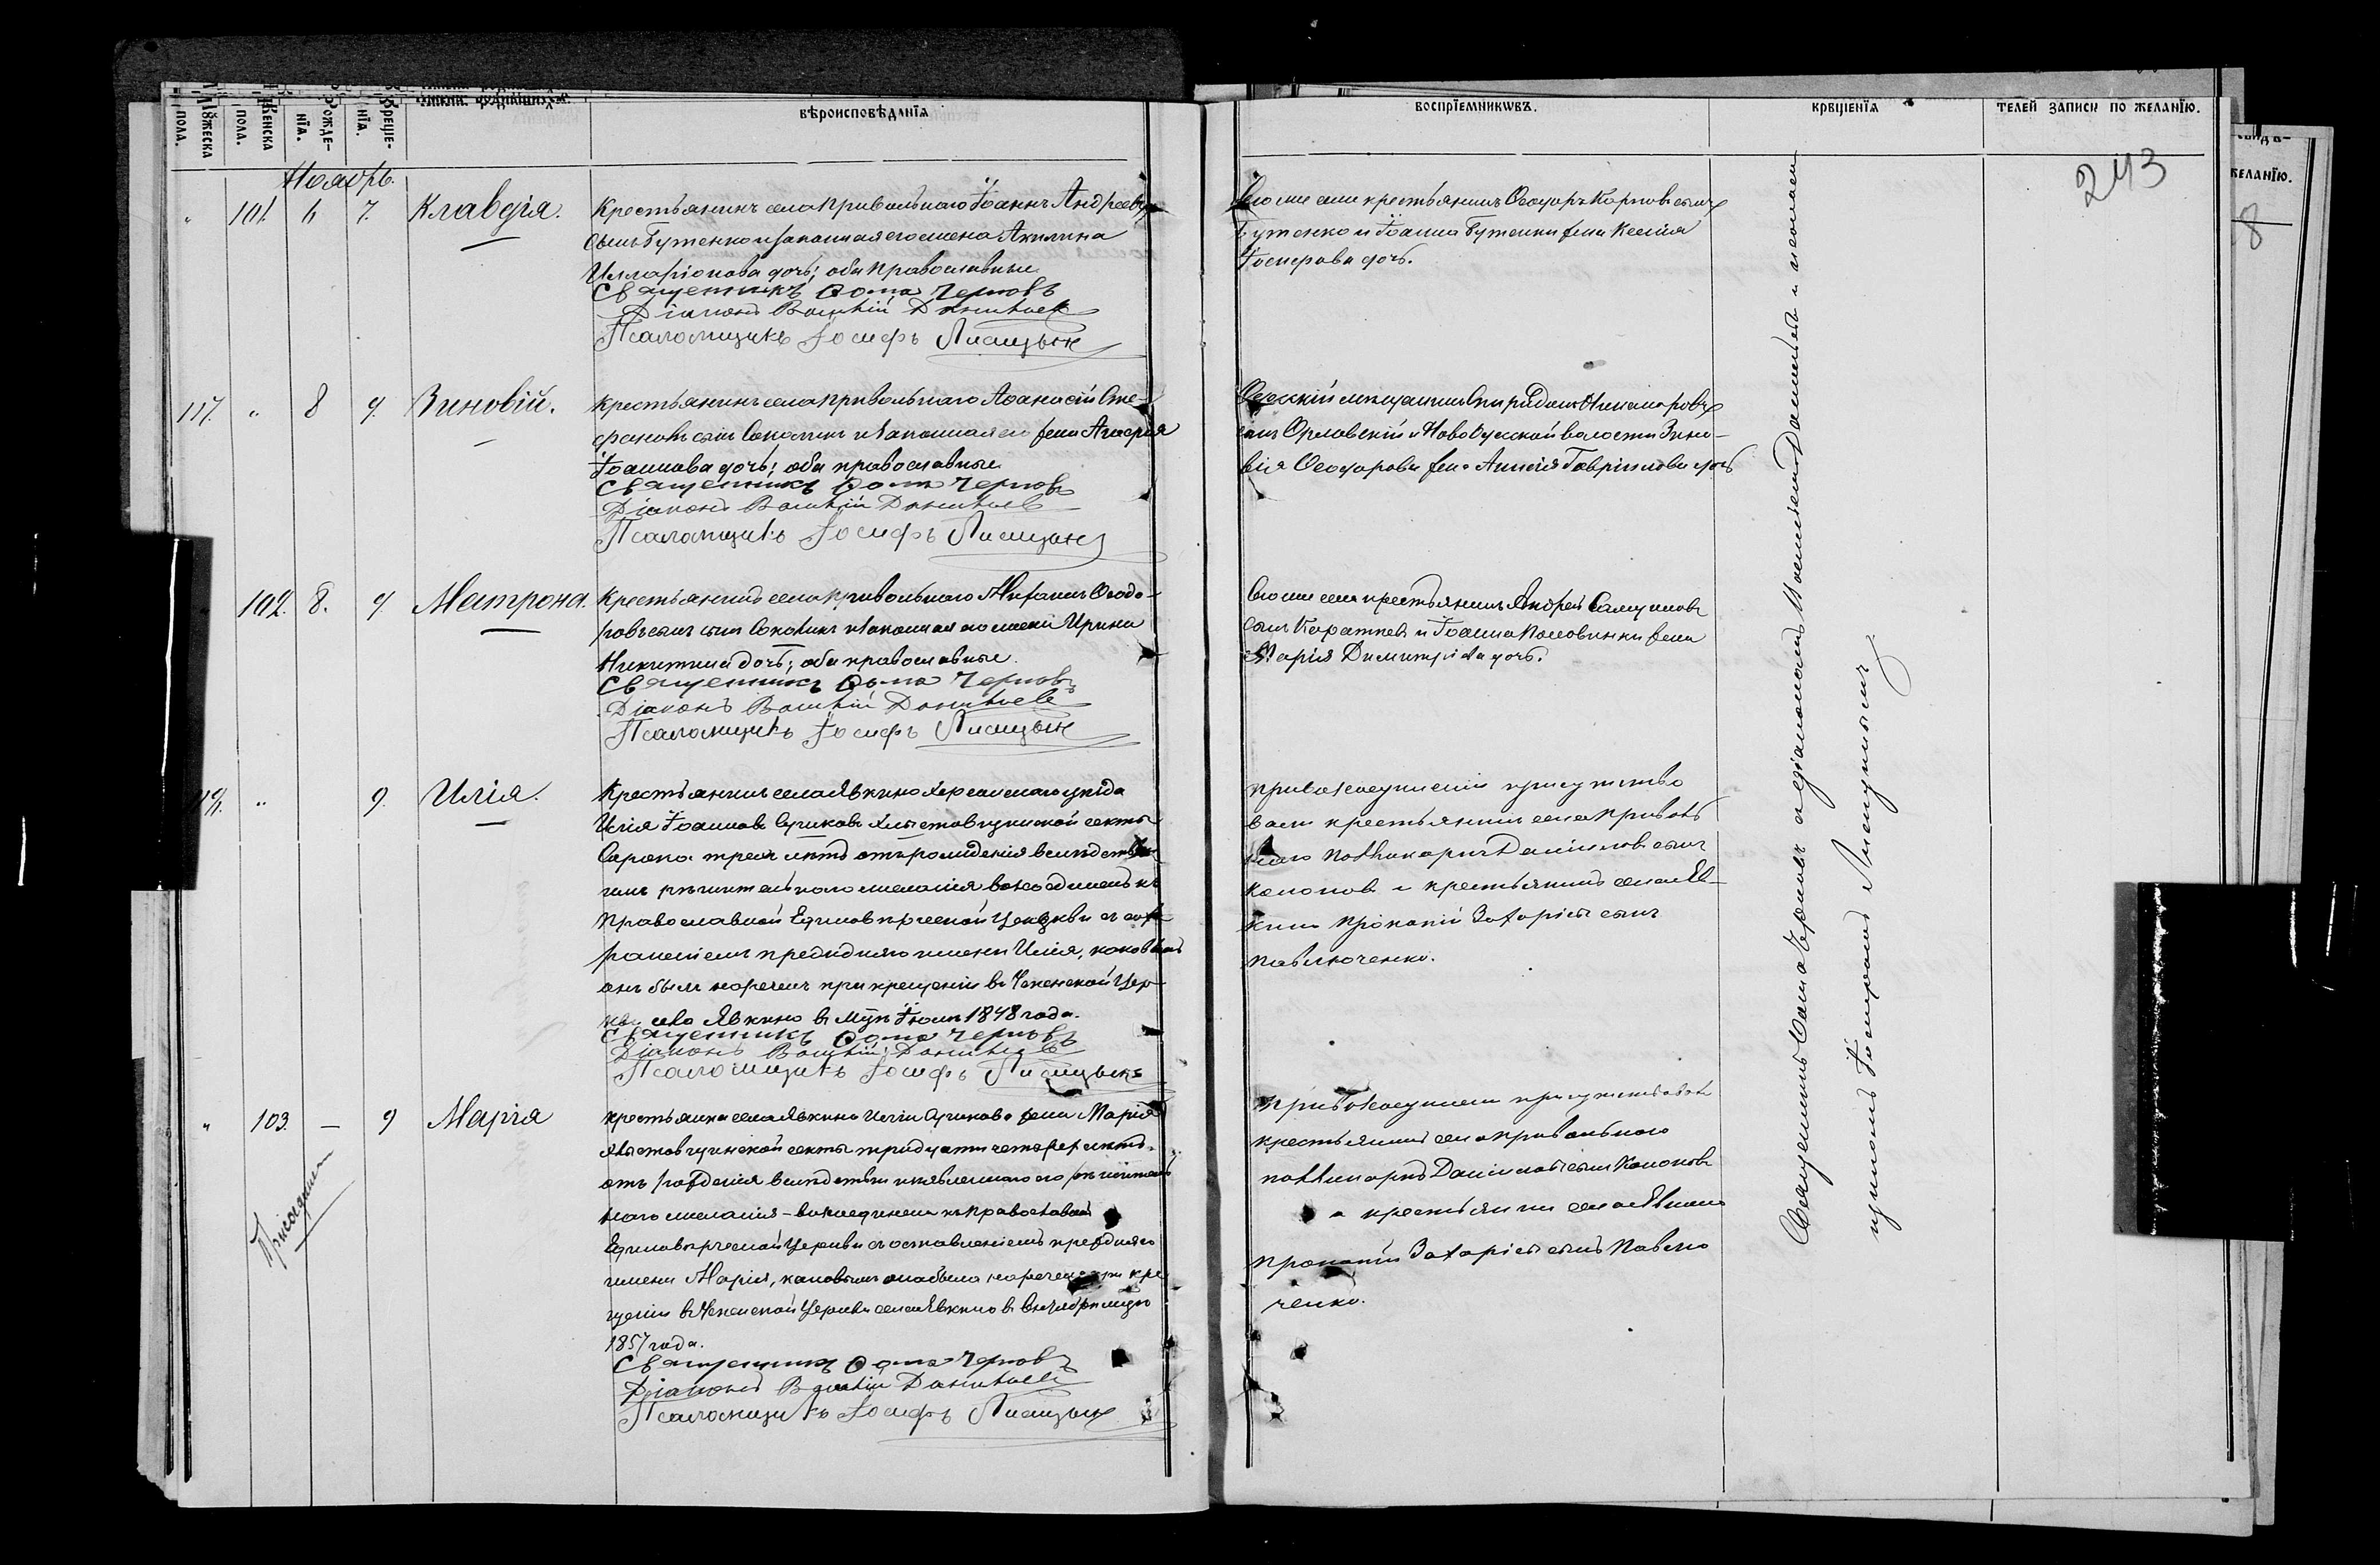 Мꙋжеска пола.
Женска пола.
Рожде-нїѧ.
Креще-нїѧ.
вѣроисповѣданїѧ
воспрїемникѡвъ.
крещенїѧ
телей записи по желанїю.
желанїю.
243
8
Ноябрь.
" 101. 6 7. Клавдія.
Крестьянинъ села Привольнаго Іоаннъ Андреевъ
сынъ Бутенко и законная его жена Акилина
Илларіонова дочь; оба православные.
Священникъ Ѳома Черновъ
Діаконъ Василій Данильевъ
Псаломщикъ Іосифъ Лисицынъ
того же села крестьянинъ Ѳеодоръ Карповъ сынъ
Бутенко и Іоанна Бутенки жена Ксенія
Іосифова дочь.
117. " 8 9. Зиновій.
Крестьянинъ села Привольнаго Аѳанасій Сте-
фановъ сынъ и законная его жена Агафія
Іоаннова дочь; оба православные.
Священникъ Ѳома Черновъ
Діаконъ Василій Данильевъ
Псаломщикъ Іосифъ Лисицынъ
мещанинъ Спиридонъ Никаноровъ
сынъ Орловскій и Новобугской волости Зино-
вія Ѳеодорова жена Гавріилова дочь
102. 8. 9. Матрона.
Крестьянинъ села Привольнаго Ѳеодо-
ровъ сынъ и законная его жена Ирина
Никитина дочь; оба православные.
Священникъ Ѳома Черновъ
Діаконъ Василій Данильевъ
Псаломщикъ Іосифъ Лисицынъ
того же села крестьянинъ Андрей Самуиловъ
сынъ и Іоанна жена
Марія Димитріева дочь.
" 9. Илія.
Крестьянинъ села Явкино Херсонскаго уѣзда
Илія Іоанновъ Сучковъ секты
Сорока трехъ лѣтъ отъ рожденія вслѣдствіе
рѣшительнаго желанія возсоединенъ къ
Православной Единовѣрческой Церкви съ сох-
раненіемъ прежняго имени Илія, каковымъ
онъ былъ нареченъ при крещеніи въ Успенской Цер-
кви села Явкино въ м-цѣ Іюнѣ 1848 года.
Священникъ Ѳома Черновъ
Діаконъ Василій Данильевъ
Псаломщикъ Іосифъ Лисицынъ
при возсоединеніи присутство
вали крестьянинъ села Приволь
наго Поликарпъ Даніиловъ сынъ
Кононовъ и крестьянинъ села Яв-
кино Прокопій Захаріевъ сынъ
Павлюченко.
" 103. — 9 Марія
Крестьянка села Явкино Иліи Сучкова жена Марія
секты тридцати четырехъ лѣтъ
отъ рожденія вслѣдствіе изъявленнаго его рѣшитель
наго желанія – возсоединена къ Православной
Единовѣрческой Церкви съ оставленіемъ прежняго
имени Марія, каковымъ она была наречена при кре
щеніи въ Успенской Церкви села Явкино въ
1857 года.
Священникъ Ѳома Черновъ
Діаконъ Василій Данильевъ
Псаломщикъ Іосифъ Лисицынъ
При возсоединеніи присутствовали
крестьянинъ села Привольнаго
Поликарпъ Даніиловъ сынъ Кононовъ
и крестьянинъ села Явкино
Прокопій Захаріевъ сынъ Павлю
ченко.
Священникъ Ѳома Черновъ съ діакономъ Василіемъ Данильевымъ и псалом
щикомъ Іосифомъ Лисицынымъ